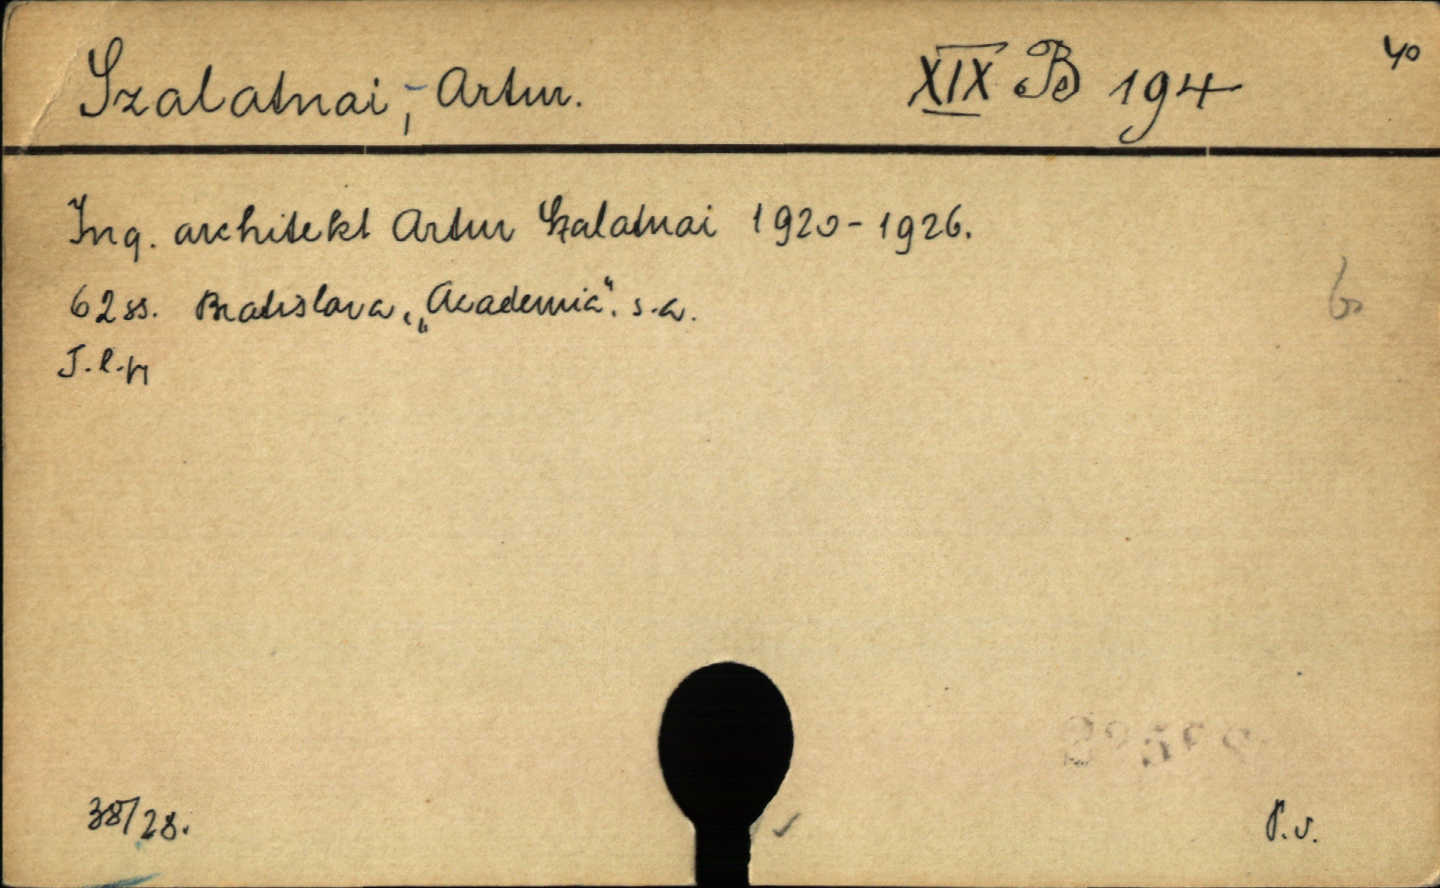 Szalatnai, Artur. XIX B 194 40
Ing. architekt Artur Szalatnai 1920-1926.
62 ss. Bratislava, „Academia". s.a.
6
38/28.
P.v.